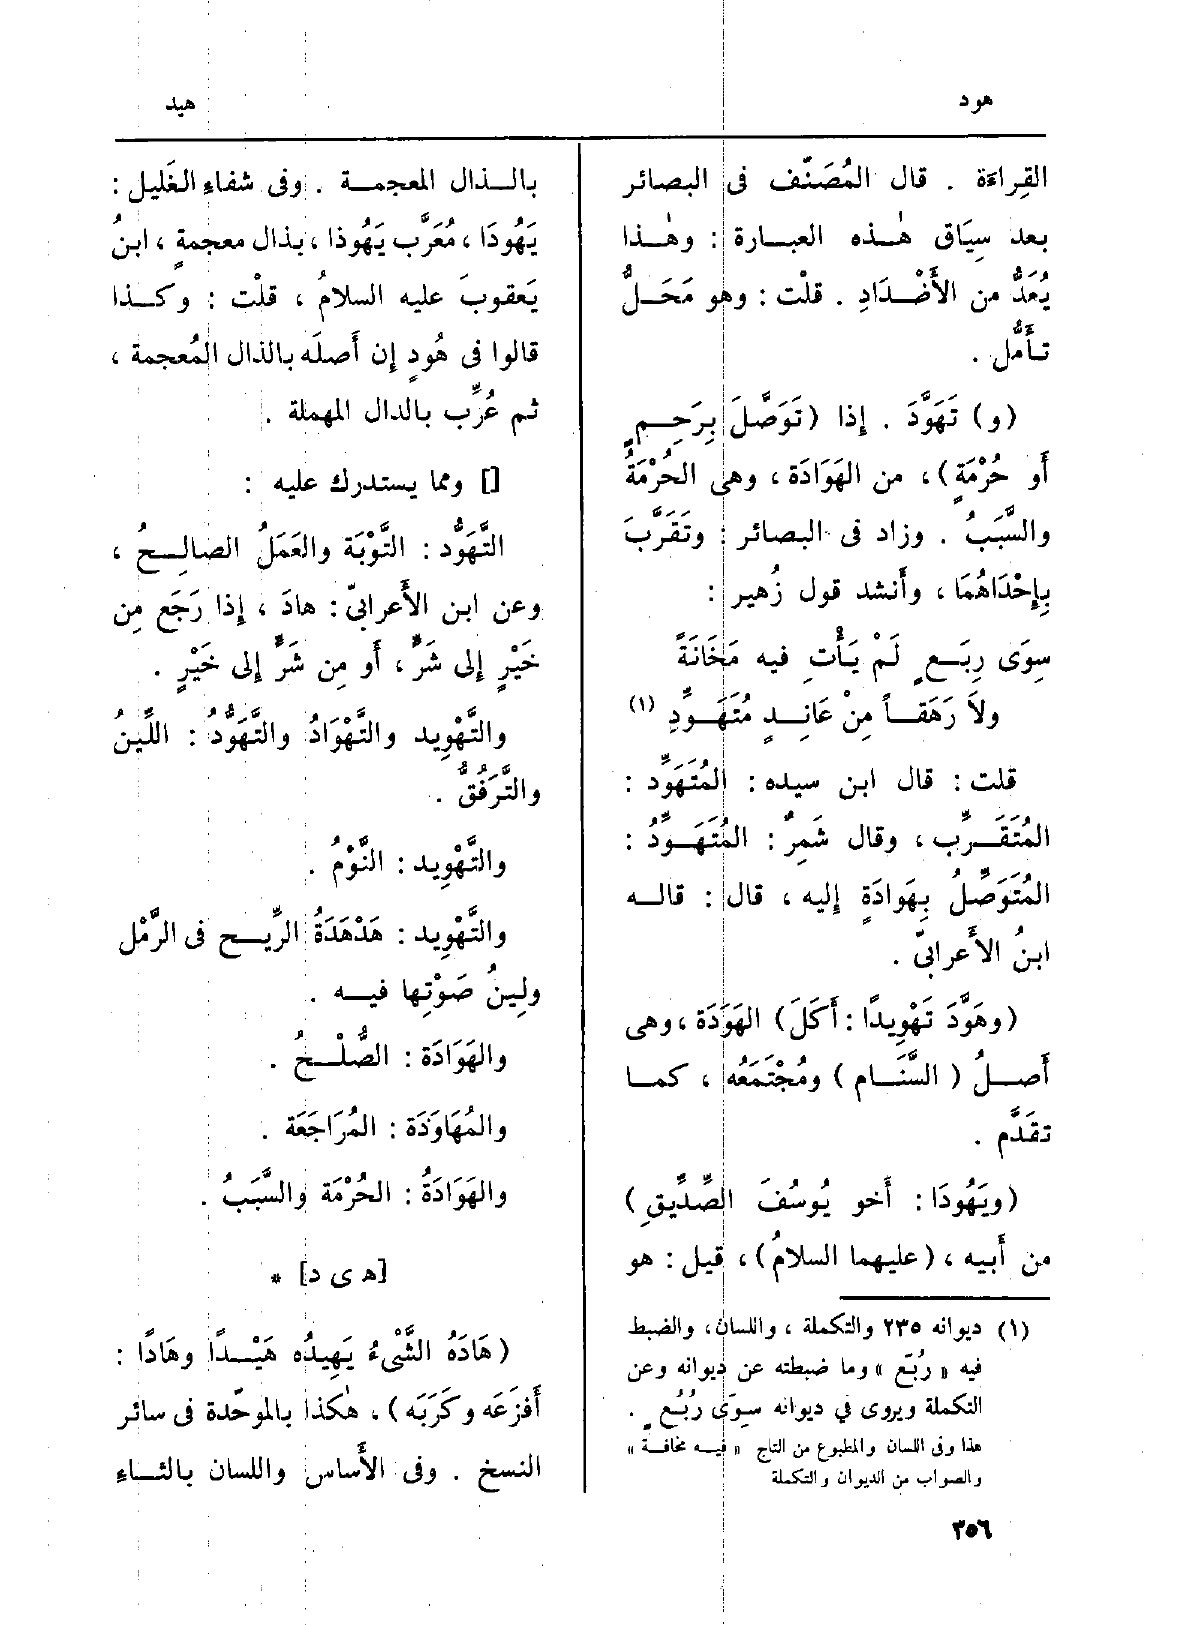 هود
هيد
القِراءَة . قال المُصَنِّف فى البصائر
بعد سِيَاق هٰذه العبارة : وهٰذا
يُعَدُّ من الأَضْدادِ . قلْت : وهو مَحَلُّ
تأَمُّل .
(و) تَهَوَّدَ . إِذا (تَوَصَّلَ بِرَحِمٍ
أو حُرْمَةٍ) ، من الهَوَادَة ، وهى الحُرْمَةُ
والسَّبَبُ . وزاد فى البصائر : وتَقَرَّبَ
بِإِحْدَاهُمَا ، وأَنشد قول زُهير :
سِوَى رِبَعٍ لَمْ يَأْتِ فيه مَخَانَةً
ولاَ رَهَقاً مِنْ عَانِدٍ مُتَهَوِّدِ (١)
قلت : قال ابن سيده : المُتَهَوِّد :
المُتَقَرِّب ، وقال شَمِرٌ : المُتَهَوِّدُ :
المُتَوَصِّلُ بِهَوادَةٍ إليه ، قال : قاله
ابنُ الأَعرابىّ .
(وهَوَّدَ تَهْوِيدًا : أَكَلَ) الهَوَدَة ، وهى
أَصلُ ( السَّنَام ) ومُجْتَمَعُه ، كما
تقدَّم .
(ويَهُودَا : أَخو يُوسُفَ الصِّدِّيقِ)
من أَبيه ، (عليهما السلامُ) ، قيل : هو
(١) ديوانه ٢٣٥ والتكملة ، واللسان، والضبط
فيه « رُبَع » وما ضبطته عن ديوانه وعن
التكملة ويروى في ديوانه سِوَى رُبُعٍ .
هذا وفى اللسان والمطبوع من التاج « فيه مخافة »
والصواب من الديوان والتكملة
بالذال المعجمة . وفى شفاءِ الغَليل :
يَهُودَا ، مُعَرَّب يَهُوذا ، بذال معجمةٍ ، ابنُ
يَعقوبَ عليه السلامُ ، قلْت : وكذا
قالوا فى هُودٍ إن أَصلَه بالذال المُعجمة ،
ثم عُرِّب بالدال المهملة .
[] ومما يستدرك عليه :
التَّهَوُّد : التَّوْبَة والعَمَلُ الصالِحُ ،
وعن ابن الأَعرابىّ : هادَ ، إِذا رَجَع مِن
خَيْرٍ إِلى شَرٍّ ، أَو مِن شَرٍّ إِلى خَيْرٍ .
والتَّهْوِيد والتَّهْوَادُ والتَّهَوُّدُ : اللِّينُ
والتَّرَفُّقُ .
والتَّهْوِيد : النَّوْمُ .
والتَّهْوِيد : هَدْهَدَةُ الرِّيح فى الرَّمْل
ولِينُ صَوْتِها فيه .
والهَوَادَة : الصُّلْحُ .
والمُهَاوَدَة : المُرَاجَعَة .
والهَوَادَةُ : الحُرْمَة والسَّبَبُ .
[ه ى د] *
( هَادَهُ الشَّىْءُ يَهِيدُه هَيْدًا وهَادًا :
أَفزَعَه وكَرَبَه ) ، هٰكذا بالموحّدة فى سائر
النسخ . وفى الأَساس واللسان بالثاءِ
٣٥٦